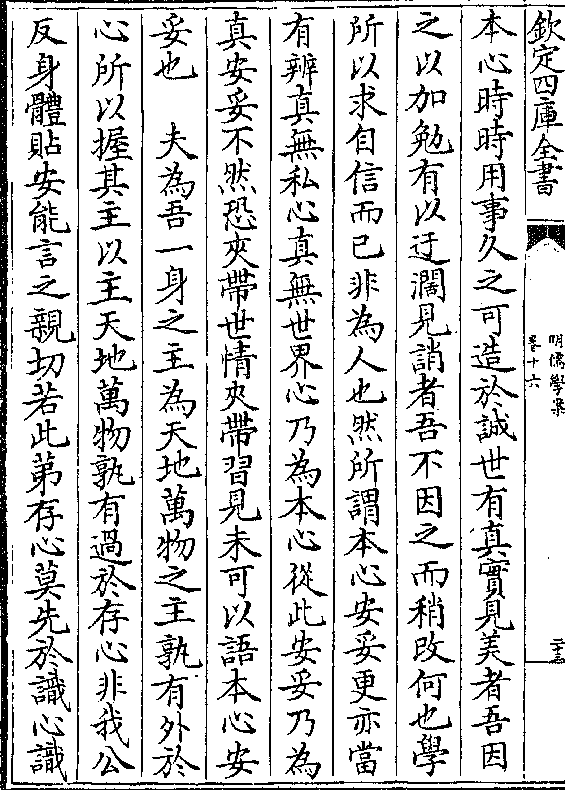 欽定四庫全書
明儒學案
卷十六
二十三
本心時時用事久之可造於誠世有真實見美者吾因
之以加勉有以迂濶見誚者吾不因之而稍改何也學
所以求自信而已非為人也然所謂本心安妥更亦當
有辨真無私心真無世界心乃為本心從此安妥乃為
真安妥不然恐夾帶世情夾帶習見未可以語本心安
妥也　夫為吾一身之主為天地萬物之主孰有外於
心所以握其主以主天地萬物孰有過於存心非我公
反身體貼安能言之親切若此第存心莫先於識心識